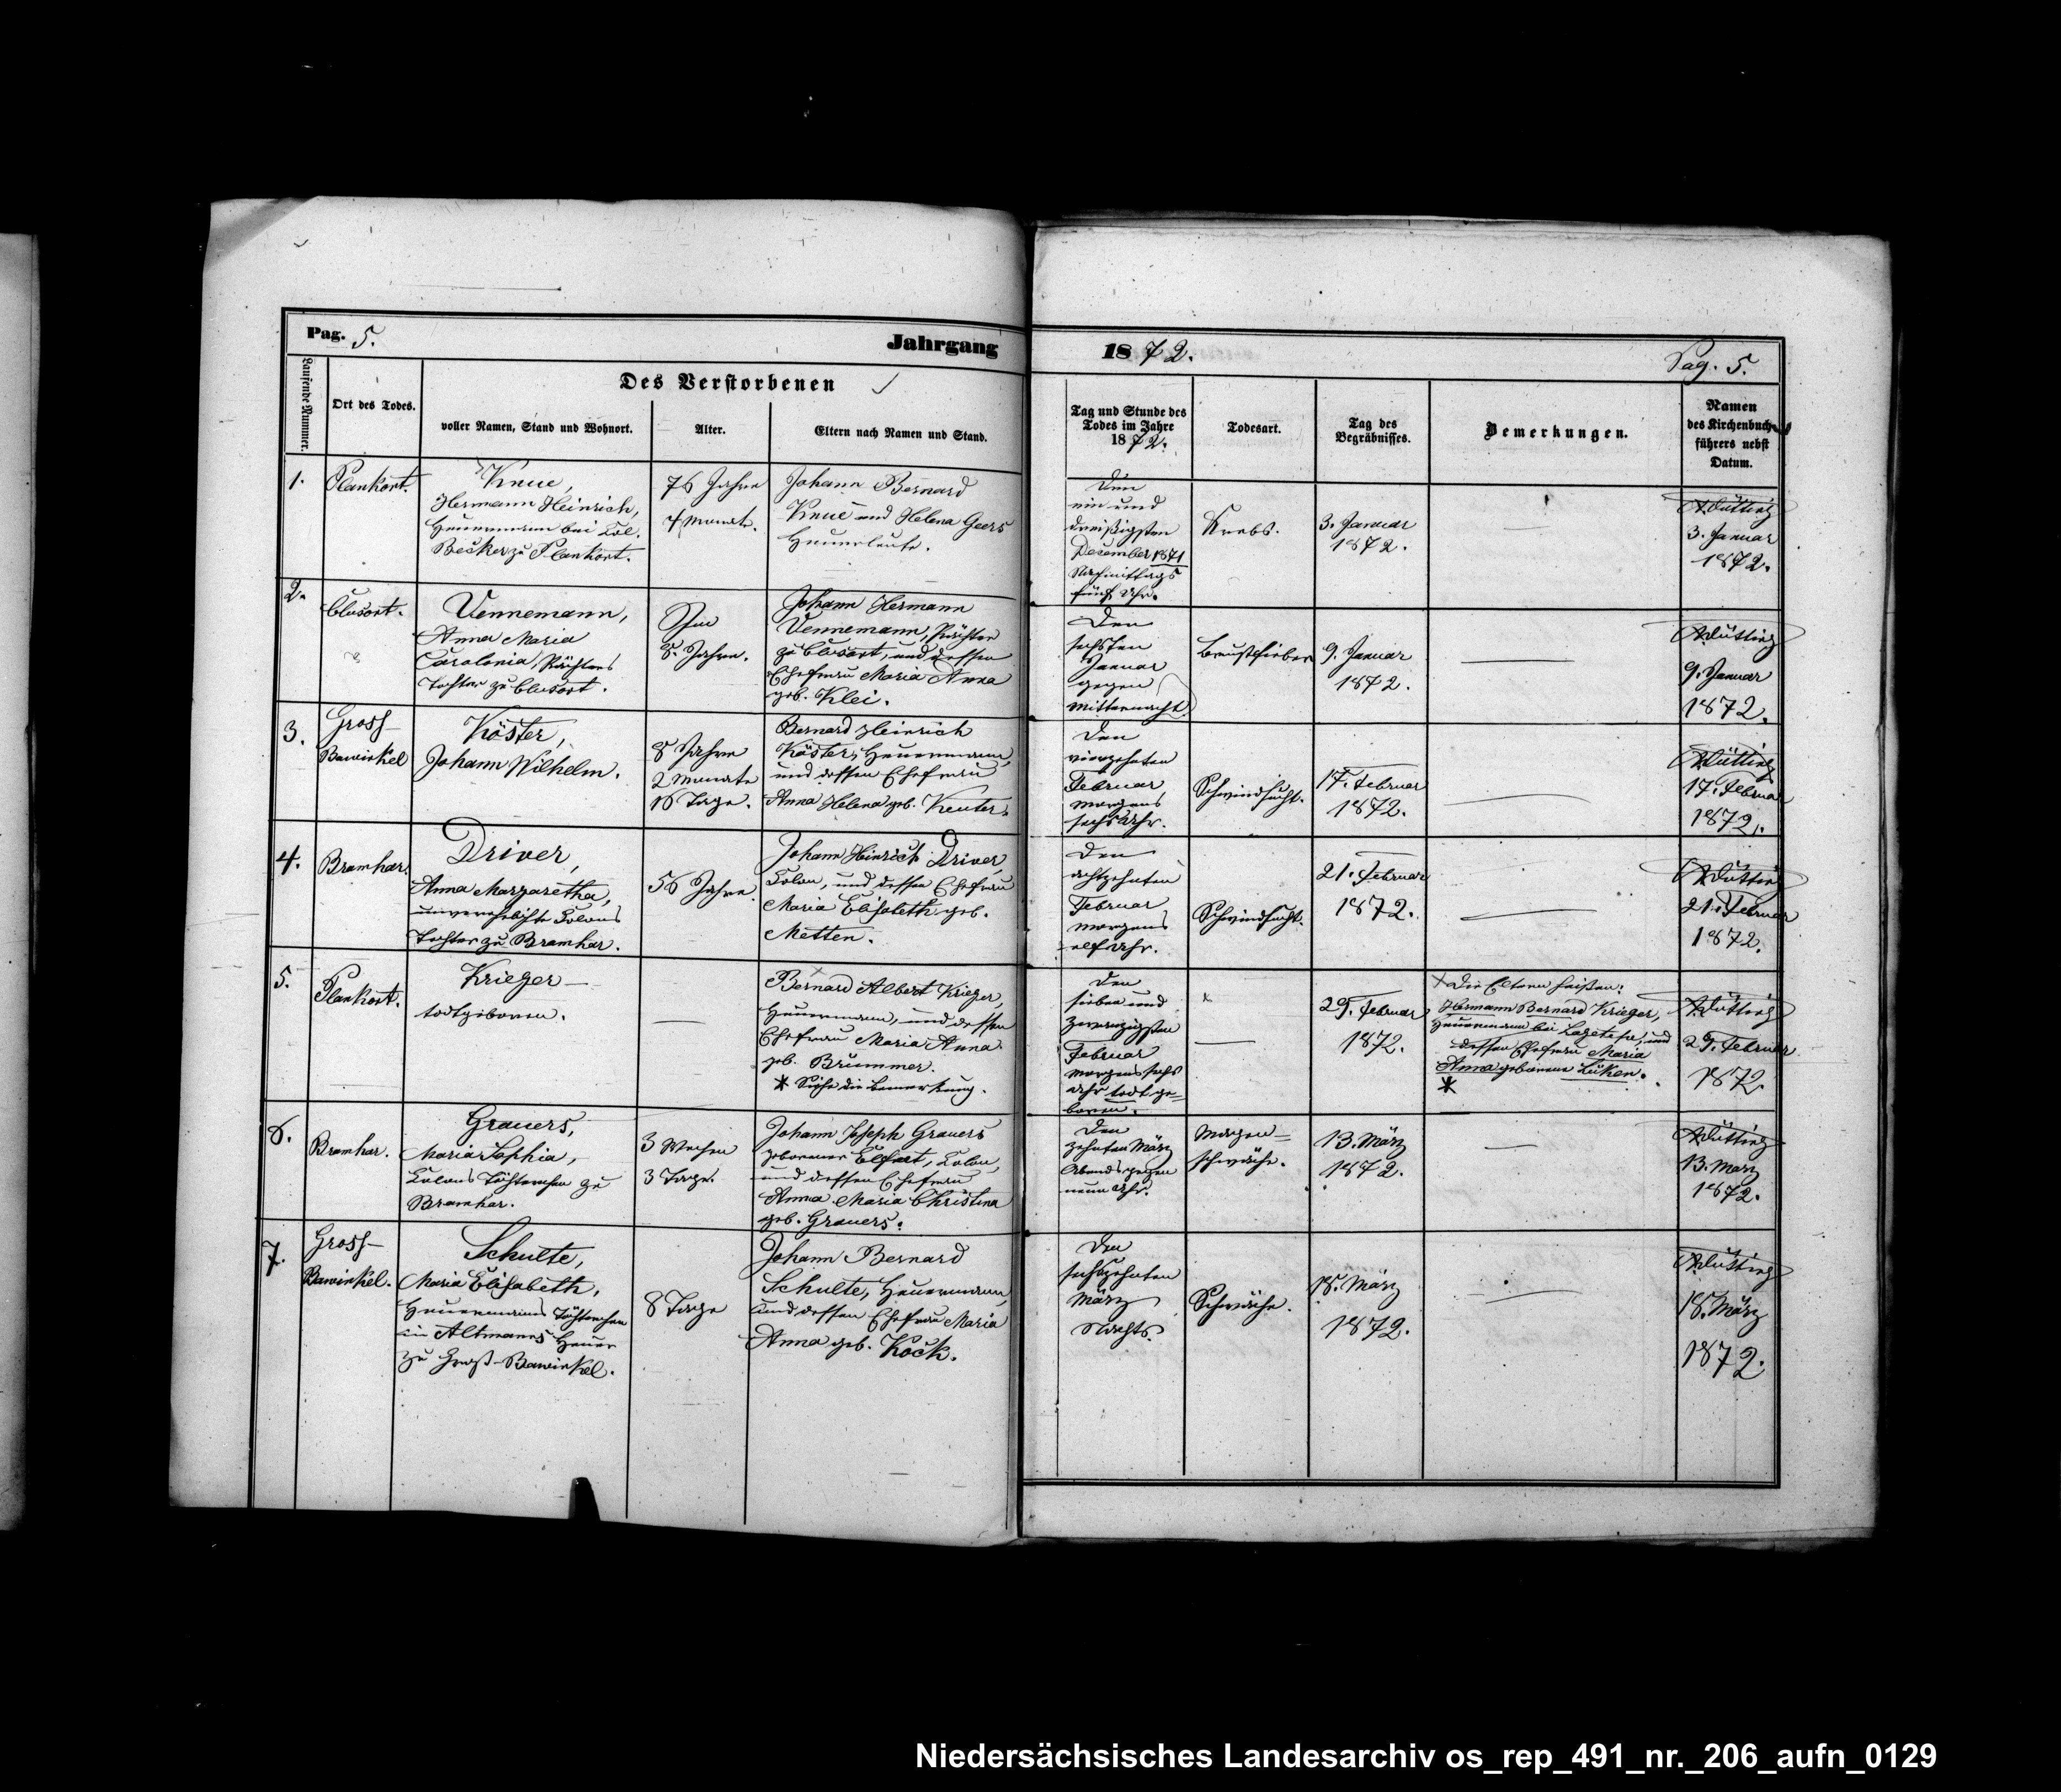 Pag. 5.
Jahrgang 1872.
Pag. 5.
Laufende Nummer.
Ort des Todes.
Des Verstorbenen
voller Namen, Stand und Wohnort.
Alter.
Eltern nach Namen und Stand.
Tag und Stunde des
Todes im Jahre
1872.
Todesart.
Tag des
Begräbnisses.
Bemerkungen.
Namen
des Kirchenbuch-
führers nebst
Datum.
1.
Plankort.
Knue,
Hermann Heinrich,
Heuermann bei Col.
Becker zu Plankort.
76 Jahre
7 Monate.
Johann Bernard
Knue und Helena Geers
Heuerleute.
Den
ein und
dreißigsten
December 1871
Nachmittags
fünf Uhr.
Krebs.
3. Januar
1872.
3. Januar
1872.
2.
Clusort.
Vennemann,
Anna Maria
Carolonia, Pächters
Tochter zu Clusort.
8. Jahre.
Johann Hermann
Vennemann, Pächter
zu Clusort, und dessen
Ehefrau Maria Anna
geb. Klei.
Den
sechsten
Januar
gegen
Mitternacht.
Brustfieber
9. Januar
1872.
9. Januar
1872.
3.
Gross-
Bawinkel
Köster,
Johann Wilhelm.
8 Jahre
2 Monate
16 Tage.
Bernard Heinrich
Köster, Heuermann,
und dessen Ehefrau
Anna Helena geb. Keuter.
Den
vierzehnten
Februar,
morgens
sechs Uhr.
Schwindsucht.
17. Februar
1872.
17. Februar
1872.
4.
Bramhar.
Driver,
Anna Margaretha,
unverehelichte Colons
Tochter zu Bramhar.
56 Jahre.
Johann Heinrich Driver,
Colon, und dessen Ehefrau
Maria Elisabeth geb.
Metten.
Den
achtzehnten
Februar
morgens
elf Uhr.
Schwindsucht.
21. Februar
1872.
21. Februar
1872.
5.
Plankort.
Krieger
todtgeboren.
Bernard Albert Krieger,
Heuermann, und dessen
Ehefrau Maria Anna
geb. Brümmer.
* Siehe die Bemerkung.
Den
sieben und
zwanzigsten
Februar
morgens sechs
Uhr todt ge-
boren.
29. Februar
1872.
Die Eltern heißen:
Hermann Bernard Krieger,
Heuermann bei und
dessen Ehefrau Maria
Anna geborene Lüken.
*
29. Februar
1872.
6.
Bramhar.
Grauers,
Maria Sophia,
Colons Töchterchen zu
Bramhar.
3 Wochen
3 Tage.
Johann Joseph Grauers
geborener Colon,
und dessen Ehefrau
Anna Maria Christina
geb. Grauers.
Den
zehnten März
Abends gegen
neun Uhr.
Magen-
schwäche.
13. März
1872.
13. März
1872.
7.
Gross-
Bawinkel.
Schulte,
Maria Elisabeth,
Heuermanns Töchterchen
in Altmanns Heuer
zu Groß-Bawinkel.
8 Tage
Johann Bernard
Schulte, Heuermann,
und dessen Ehefrau Maria
Anna geb. Kock.
Den
sechszehnten
März
Nachts.
Schwäche.
18. März
1872.
18. März
1872.
Niedersächsisches Landesarchiv os_rep_491_nr._206_aufn_0129